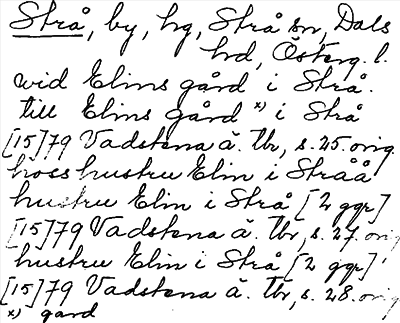 Strå, by, hg, Strå sn, Dals
hrd, Österg. l.
vid Elins gård i Strå.
till Elins Gård x) i Strå
[15]79 Vadstena ä. Tbr, s. 25. orig.
hoss hustru Elin i Stråå
hustru Elin i Strå [2 ggr]
[15]79 Vadstena ä. Tbr, s. 27. orig
hustru Elin i Strå [2 ggr]
[15]79 Vadstena ä. Tbr, s. 28. orig
x) gard